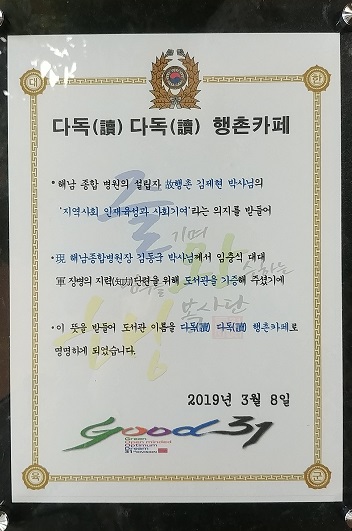 대 한
다독(讀) 다독(讀) 행촌카페
• 해남 종합 병원의 설립자 故행촌 김제현 박사님의
'지역사회 인재육성과 사회기여'라는 의지를 받들어
• 現 해남종합병원장 김동국 박사님께서 임충식 대대
軍 장병의 지력(知力)단련을 위해 도서관을 기증해 주셨기에
• 이 뜻을 받들어 도서관 이름을 다독(讀) 다독(讀) 행촌카페로
명명하게 되었습니다.
2019년 3월 8일
good 31
Green
Open minded
Optimum
Dream
육 군